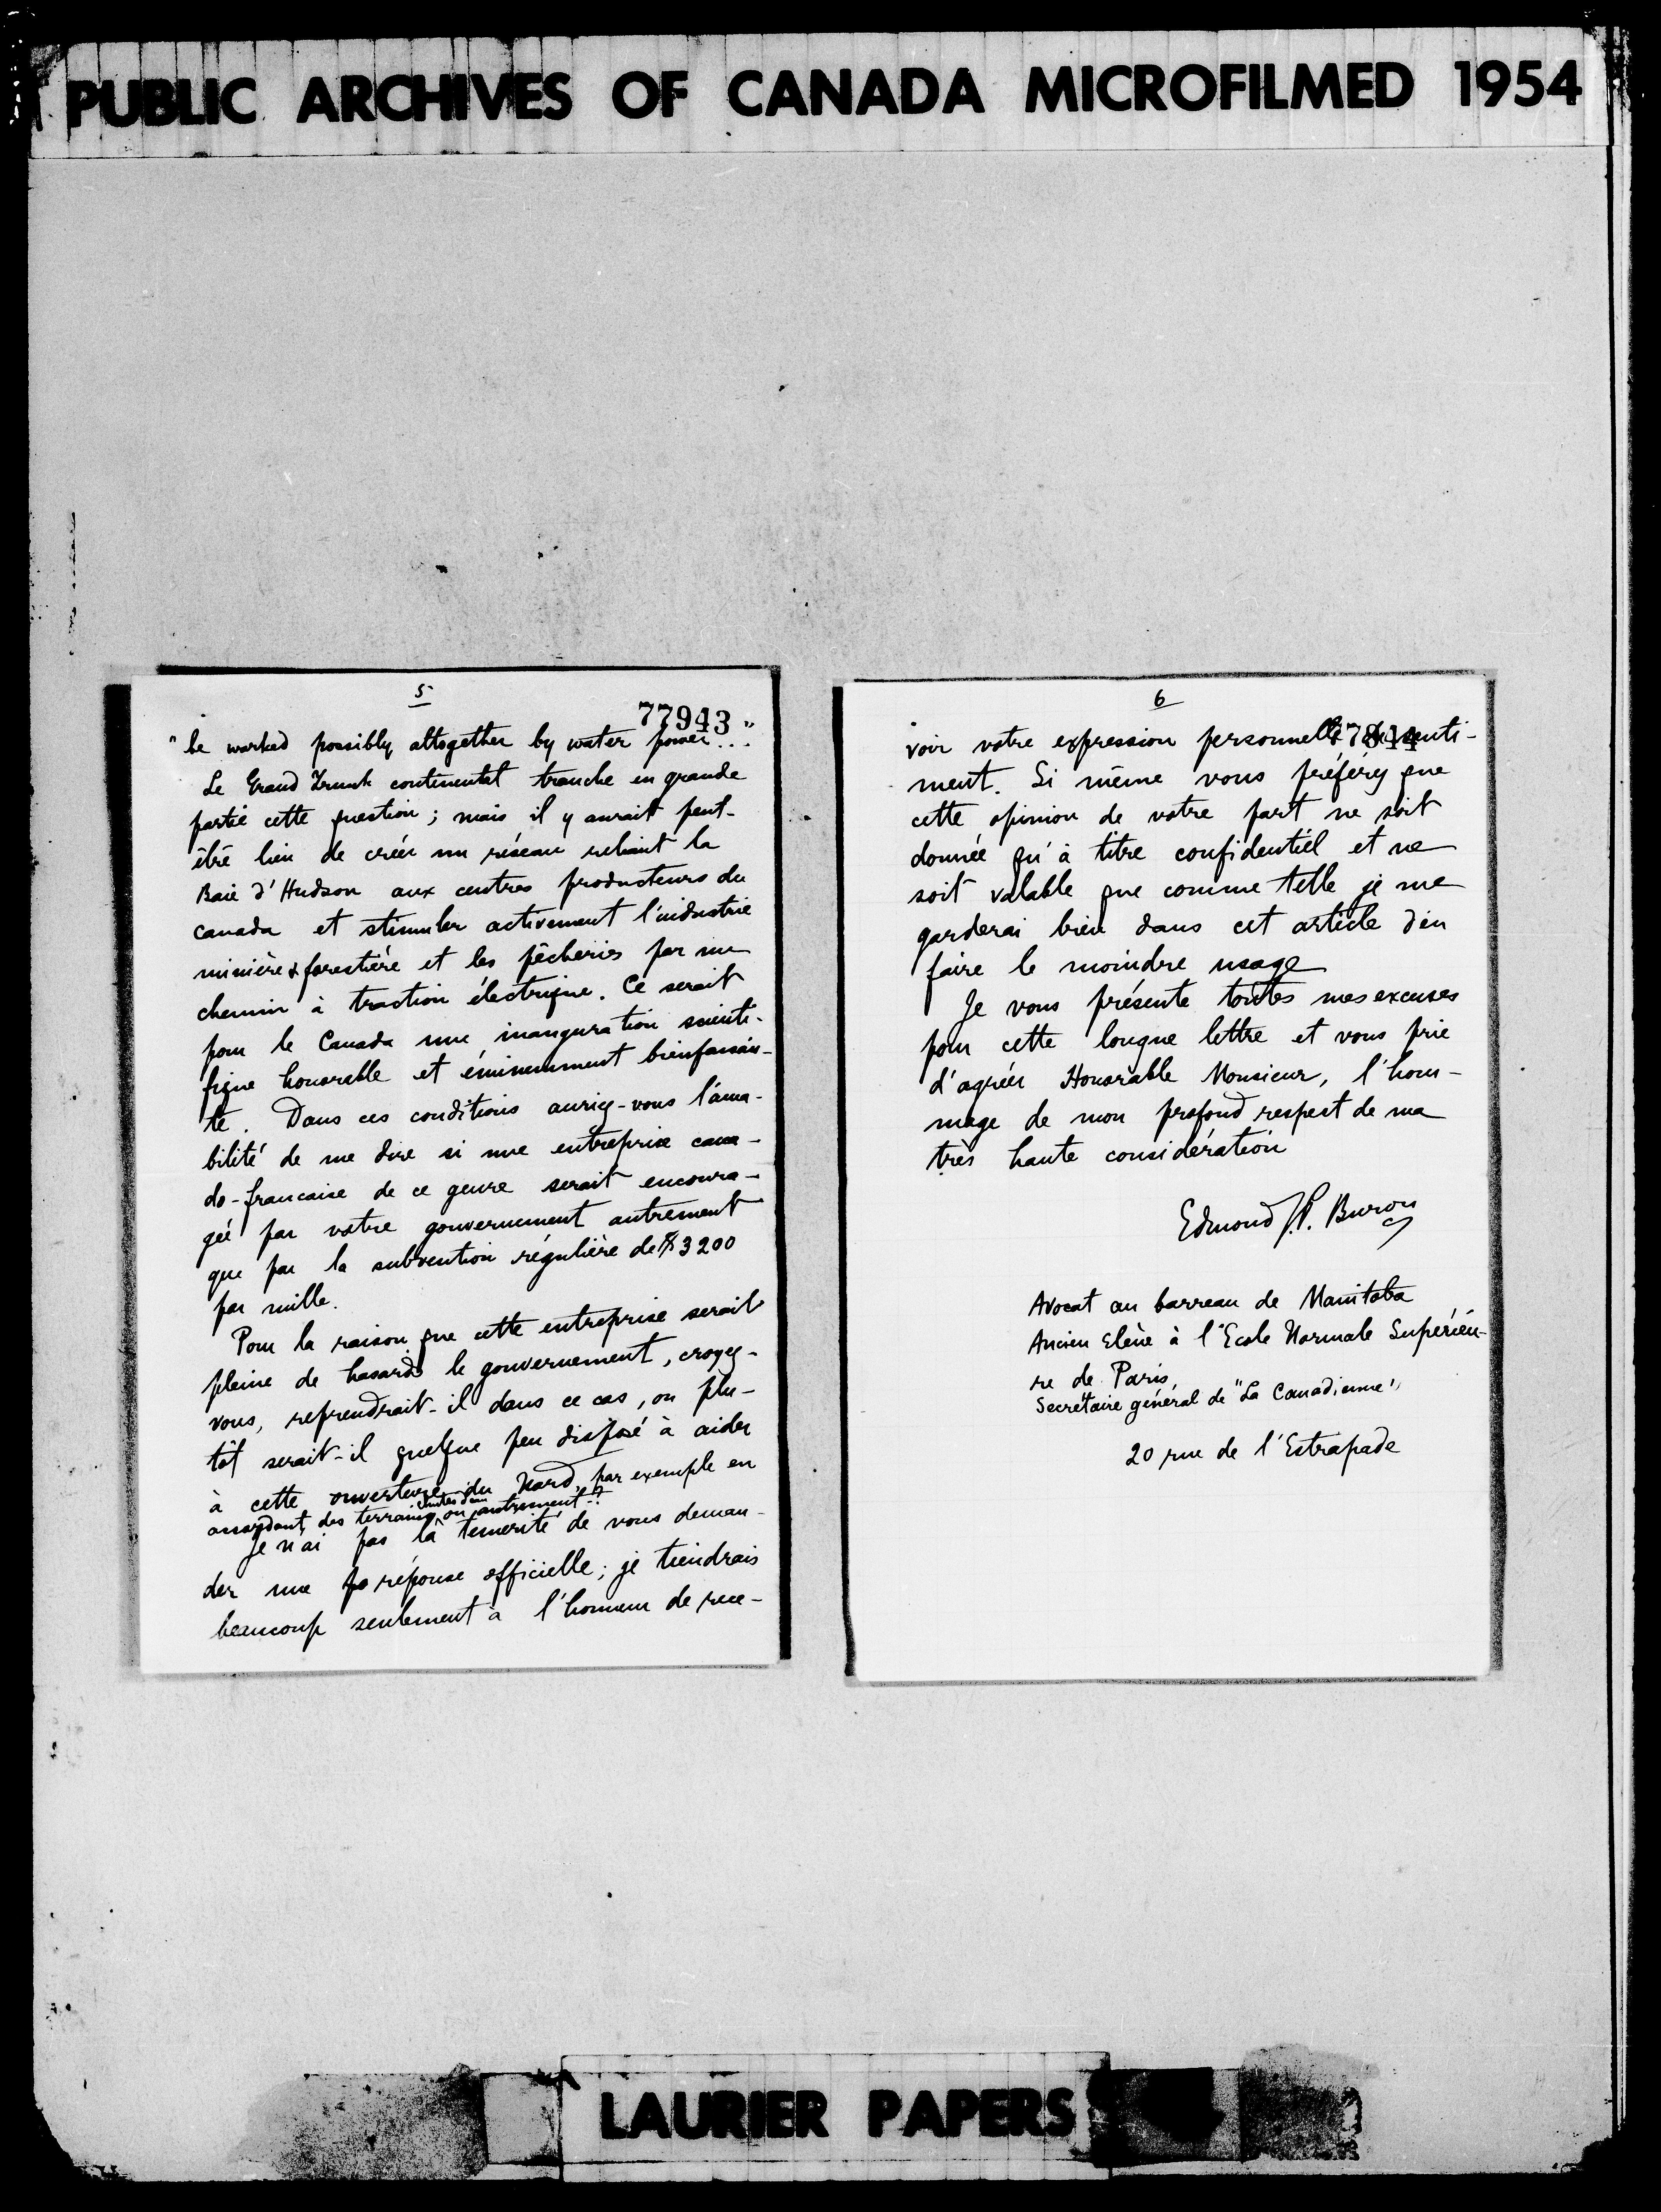 PUBLIC ARCHIVES OF CANADA MICROFILMED 1954
5
77943
"be worked possibly altogether by water power..."
Le Grand Trunk continental tranche en grande
partie cette question; mais il y aurait peut-
être lieu de créer un réseau reliant la
Baie d'Hudson aux centres producteurs du
Canada et stimuler activement l'industrie
minière & forestière et les pêcheries par un
chemin à traction électrique. Ce serait
pour le Canada une inauguration scienti-
fique honorable et éminemment bienfaisan-
te. Dans ces conditions auriez-vous l'ama-
bilité de me dire si une entreprise cana-
do-francaise de ce genre serait encoura-
gée par votre gouvernement autrement
que par la subvention régulière de $3200
par mille.
Pour la raison que cette entreprise serait
pleine de hasards le gouvernement, croyez-
vous, reprendrait-il dans ce cas, ou plu-
tôt serait-il quelque peu disposé à aider
à cette ouverture du Nord, par exemple en
accordant des terrains, chutes d'eau ou autrement-?
Je n'ai pas la témérité de vous deman-
der une réponse officielle; je tiendrais
beaucoup seulement à l'honneur de rece-
6
voir votre expression personnelle de senti-
ment. Si même vous préférez que
cette opinion de votre part ne soit
donnée qu'à titre confidentiel et ne
soit valable que comme telle je me
garderai bien dans cet article d'en
faire le moindre usage
Je vous présente toutes mes excuses
pour cette longue lettre et vous prie
d'agréer Honorable Monsieur, l'hom-
mage de mon profond respect de ma
très haute considération
Edmond J.P. Buron
Avocat au barreau de Manitoba
Ancien Elève à l'Ecole Normale Supérieu-
re de Paris,
Secrétaire général de "La Canadienne",
20 rue de l'Estrapade
LAURIER PAPERS